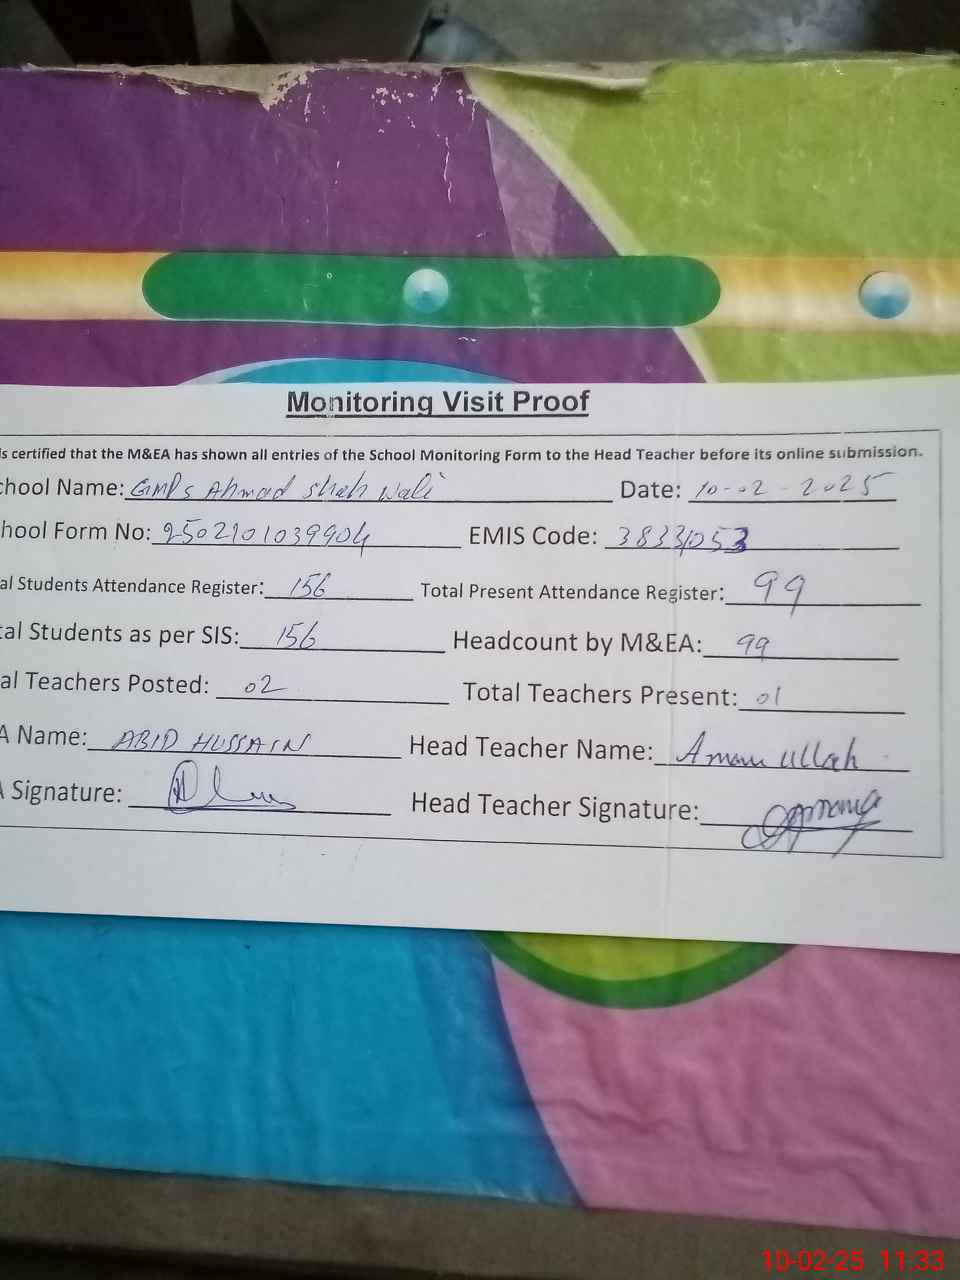 Monitoring Visit Proof
is certified that the M&EA has shown all entries of the School Monitoring Form to the Head Teacher before its online submission.
chool Name: GMPS Ahmad Shah Wali Date: 10-02-2025
hool Form No: 2502101039904 EMIS Code: 38331053
al Students Attendance Register: 156 Total Present Attendance Register: 99
tal Students as per SIS: 156 Headcount by M&EA: 99
al Teachers Posted: 02 Total Teachers Present: 01
A Name: ABID HUSSAIN Head Teacher Name: Aman ullah
A Signature: Head Teacher Signature:
10-02-25 11:33